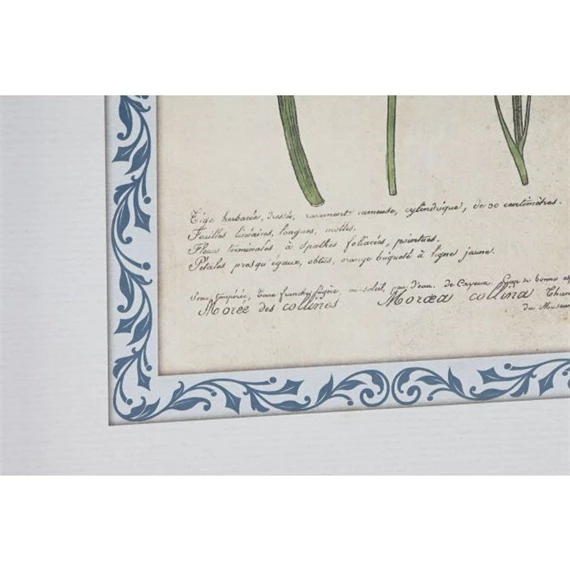 Tige herbacée, dressée, rarement rameuse, cylindrique, de 30 centimètres.
Feuilles linéaires, longues, molles.
Fleurs terminales à spathes foliacées, pointues.
Pétales presqu'égaux, obtus, orange bigueté à ligne jaune.
Serre tempérée, Terre franche légère, mi-soleil, peu d'eau. de Cayeux.
Morée des collines Moræa collina Thun
du Museum